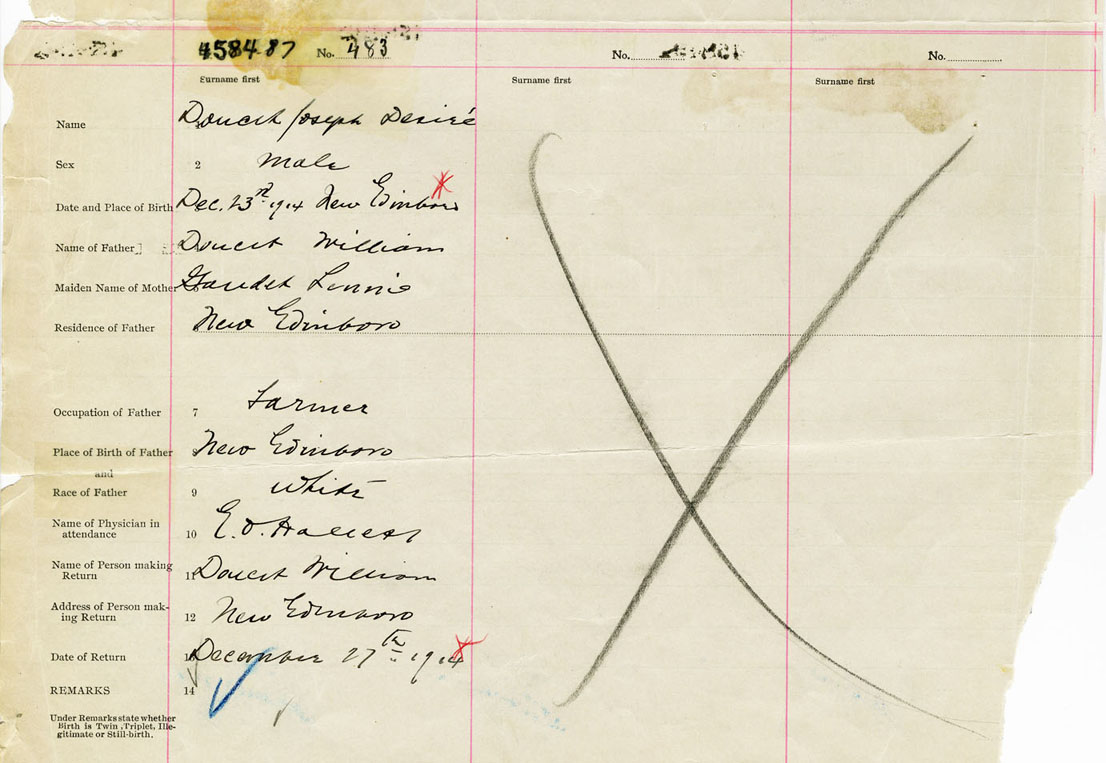 458487 No. 483 No. No.
Surname first Surname first Surname first
Name Doucet Joseph Desiré
Sex 2 Male
Date and Place of Birth Dec. 23rd 1914 New Edinboro
Name of Father Doucet William
Maiden Name of Mother Gaudet Lennie
Residence of Father New Edinboro
Occupation of Father 7 Farmer
Place of Birth of Father New Edinboro
and
Race of Father 9 White
Name of Physician in
attendance 10 E. O.
Name of Person making
Return 11 Doucet William
Address of Person mak-
ing Return 12 New Edinboro
Date of Return 13 December 27th 1914
REMARKS 14
Under Remarks state whether
Birth is Twin, Triplet, Ille-
gitimate or Still-birth.